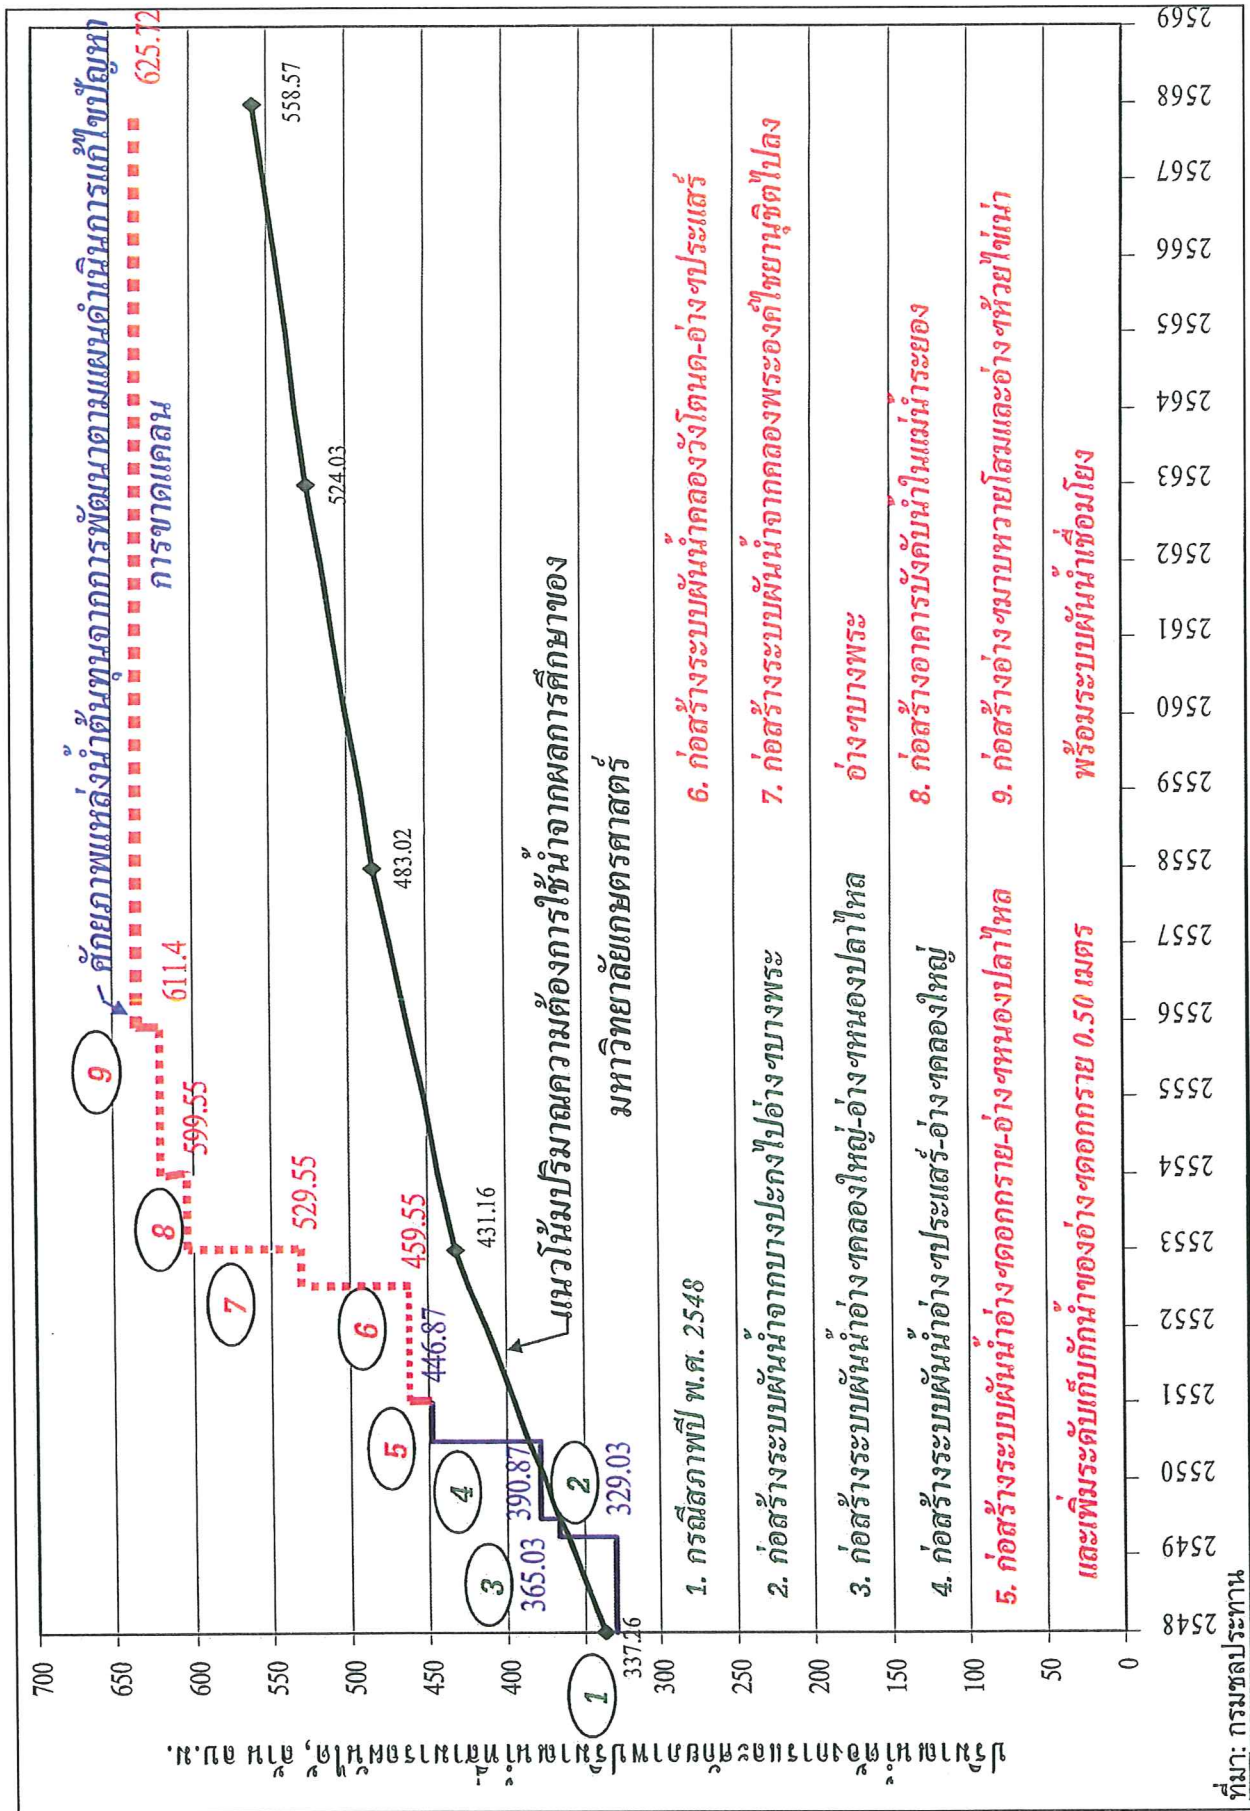 ปริมาณน้ำต้องการและศักยภาพปริมาณน้ำที่สามารถผันได้, ล้าน ลบ.ม.
700
650
600
550
500
450
400
350
300
250
200
150
100
50
0
2548
2549
2550
2551
2552
2553
2554
2555
2556
2557
2558
2559
2560
2561
2562
2563
2564
2565
2566
2567
2568
2569
ศักยภาพแหล่งน้ำต้นทุนจากการพัฒนาตามแผนดำเนินการแก้ไขปัญหา
การขาดแคลน
625.72
611.4
599.55
529.55
459.55
446.87
390.87
365.03
329.03
337.26
431.16
483.02
524.03
558.57
1
2
3
4
5
6
7
8
9
แนวโน้มปริมาณความต้องการใช้น้ำจากผลการศึกษาของ
มหาวิทยาลัยเกษตรศาสตร์
1. กรณีสภาพปี พ.ศ. 2548
2. ก่อสร้างระบบผันน้ำจากบางปะกงไปอ่างฯบางพระ
3. ก่อสร้างระบบผันน้ำอ่างฯคลองใหญ่-อ่างฯหนองปลาไหล
4. ก่อสร้างระบบผันน้ำอ่างฯประแสร์-อ่างฯคลองใหญ่
5. ก่อสร้างระบบผันน้ำอ่างฯดอกกราย-อ่างฯหนองปลาไหล
และเพิ่มระดับเก็บกักน้ำของอ่างฯดอกกราย 0.50 เมตร
6. ก่อสร้างระบบผันน้ำคลองวังโตนด-อ่างฯประแสร์
7. ก่อสร้างระบบผันน้ำจากคลองพระองค์ไชยานุชิตไปลง
อ่างฯบางพระ
8. ก่อสร้างอาคารบังคับน้ำในแม่น้ำระยอง
9. ก่อสร้างอ่างฯมาบหวายโสมและอ่างฯห้วยไข่เน่า
พร้อมระบบผันน้ำเชื่อมโยง
ที่มา: กรมชลประทาน